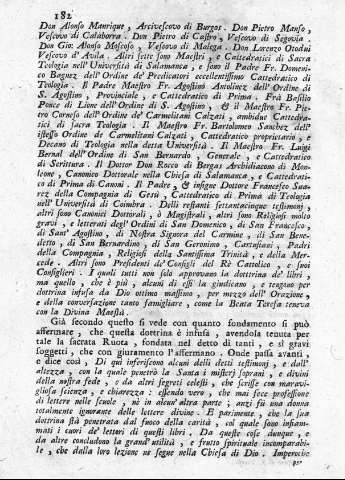 182
Don Alonso Manrique, Arcivescovo di Burgos. Don Pietro Manso,
Vescovo di Calahorra. Don Pietro di Castro, Vescovo di Segovia.
Don Gio: Alonso Moscoso, Vescovo di Malega. Don Lorenzo Otodui
Vescovo d'Avila. Altri sette sono Maestri, e Cattedratici di Sacra
Teologia nell'Università di Salamanca, e sono il Padre Fr. Domeni-
co Bagnez dell'Ordine de' Predicatori eccellentissimo Cattedratico di
Teologia. Il Padre Maestro Fr. Agostino Antolinez dell'Ordine di
S. Agostino, Provinciale, e Cattedratico di Prima. Frà Basilio
Ponce di Lione dell'Ordine di S. Agostino, & il Maestro Fr. Pie-
tro Cornejo dell'Ordine de' Carmelitani Calzati, ambidue Cattedra-
tici di Sacra Teologia. Il Maestro Fr. Bartolomeo Sanchez dell'
istesso Ordine de Carmelitani Calzati, Cattedratico proprietario, e
Decano di Teologia nella detta Università. Il Maestro Fr. Luigi
Bernal dell'Ordine di San Bernardo, Generale, e Cattedratico
di Scrittura. Il Dottor Don Rocco di Bargas Archidiacono di Mon-
leone, Canonico Dottorale nella Chiesa di Salamanca, e Cattedrati-
co di Prima di Canoni. Il Padre, & insigne Dottore Francesco Sua-
rez della Compagnia di Gesù, Cattedratico di Prima di Teologia
nell'Università di Coimbra. Delli restanti settantacinque testimonj,
altri sono Canonici Dottorali, è Magistrali, altri sono Religiosi molto
gravi, e letterati degl'Ordini di San Domenico, di San Francesco,
di Sant'Agostino, di Nostra Signora del Carmine, di San Bene-
detto, di San Bernardino, di San Geronimo, Cartusiani, Padri
della Compagnia, Religiosi della Santissima Trinità, e della Mer-
cede. Altri sono Presidenti de' Consigli del Rè Cattolico, e suoi
Consiglieri. I quali tutti non solo approvano la dottrina de' libri,
ma quello, che è più, alcuni di essi la giudicano, e tengono per
dottrina infusa da Dio ottimo massimo, per mezzo dell'Orazione,
e della conversazione tanto famigliare, come la Beata Teresa teneva
con la Divina Maestà.
Già secondo questo si vede con quanto fondamento si può
affermare, che questa dottrina è infusa, avendola tenuta per
tale la sacrata Ruota, fondata nel detto di tanti, e sì gravi
soggetti, che con giuramento l'affermano. Onde passa avanti,
e dice così, Di qui inferiscono alcuni delli detti testimonj, e dall'
altezza, con la quale penetrò la Santa i misterj soprani, e divini
della nostra fede, e da altri segreti celesti, che scrisse con maravi-
gliosa scienza, e chiarezza: essendo vero, che mai fece professione
di lettere nelle scuole, nè in alcun'altra parte; anzi fù una donna
totalmente ignorante delle lettere divine. E parimente, che la sua
dottrina stà penetrata dal fuoco della carità, col quale sono infiam-
mati i cuori de' lettori di questi libri. Da queste cose dunque, e
da altre concludono la grand'utilità, e frutto spirituale incomparabi-
le, che dalla loro lezione ne segue nella Chiesa di Dio. Imperoche